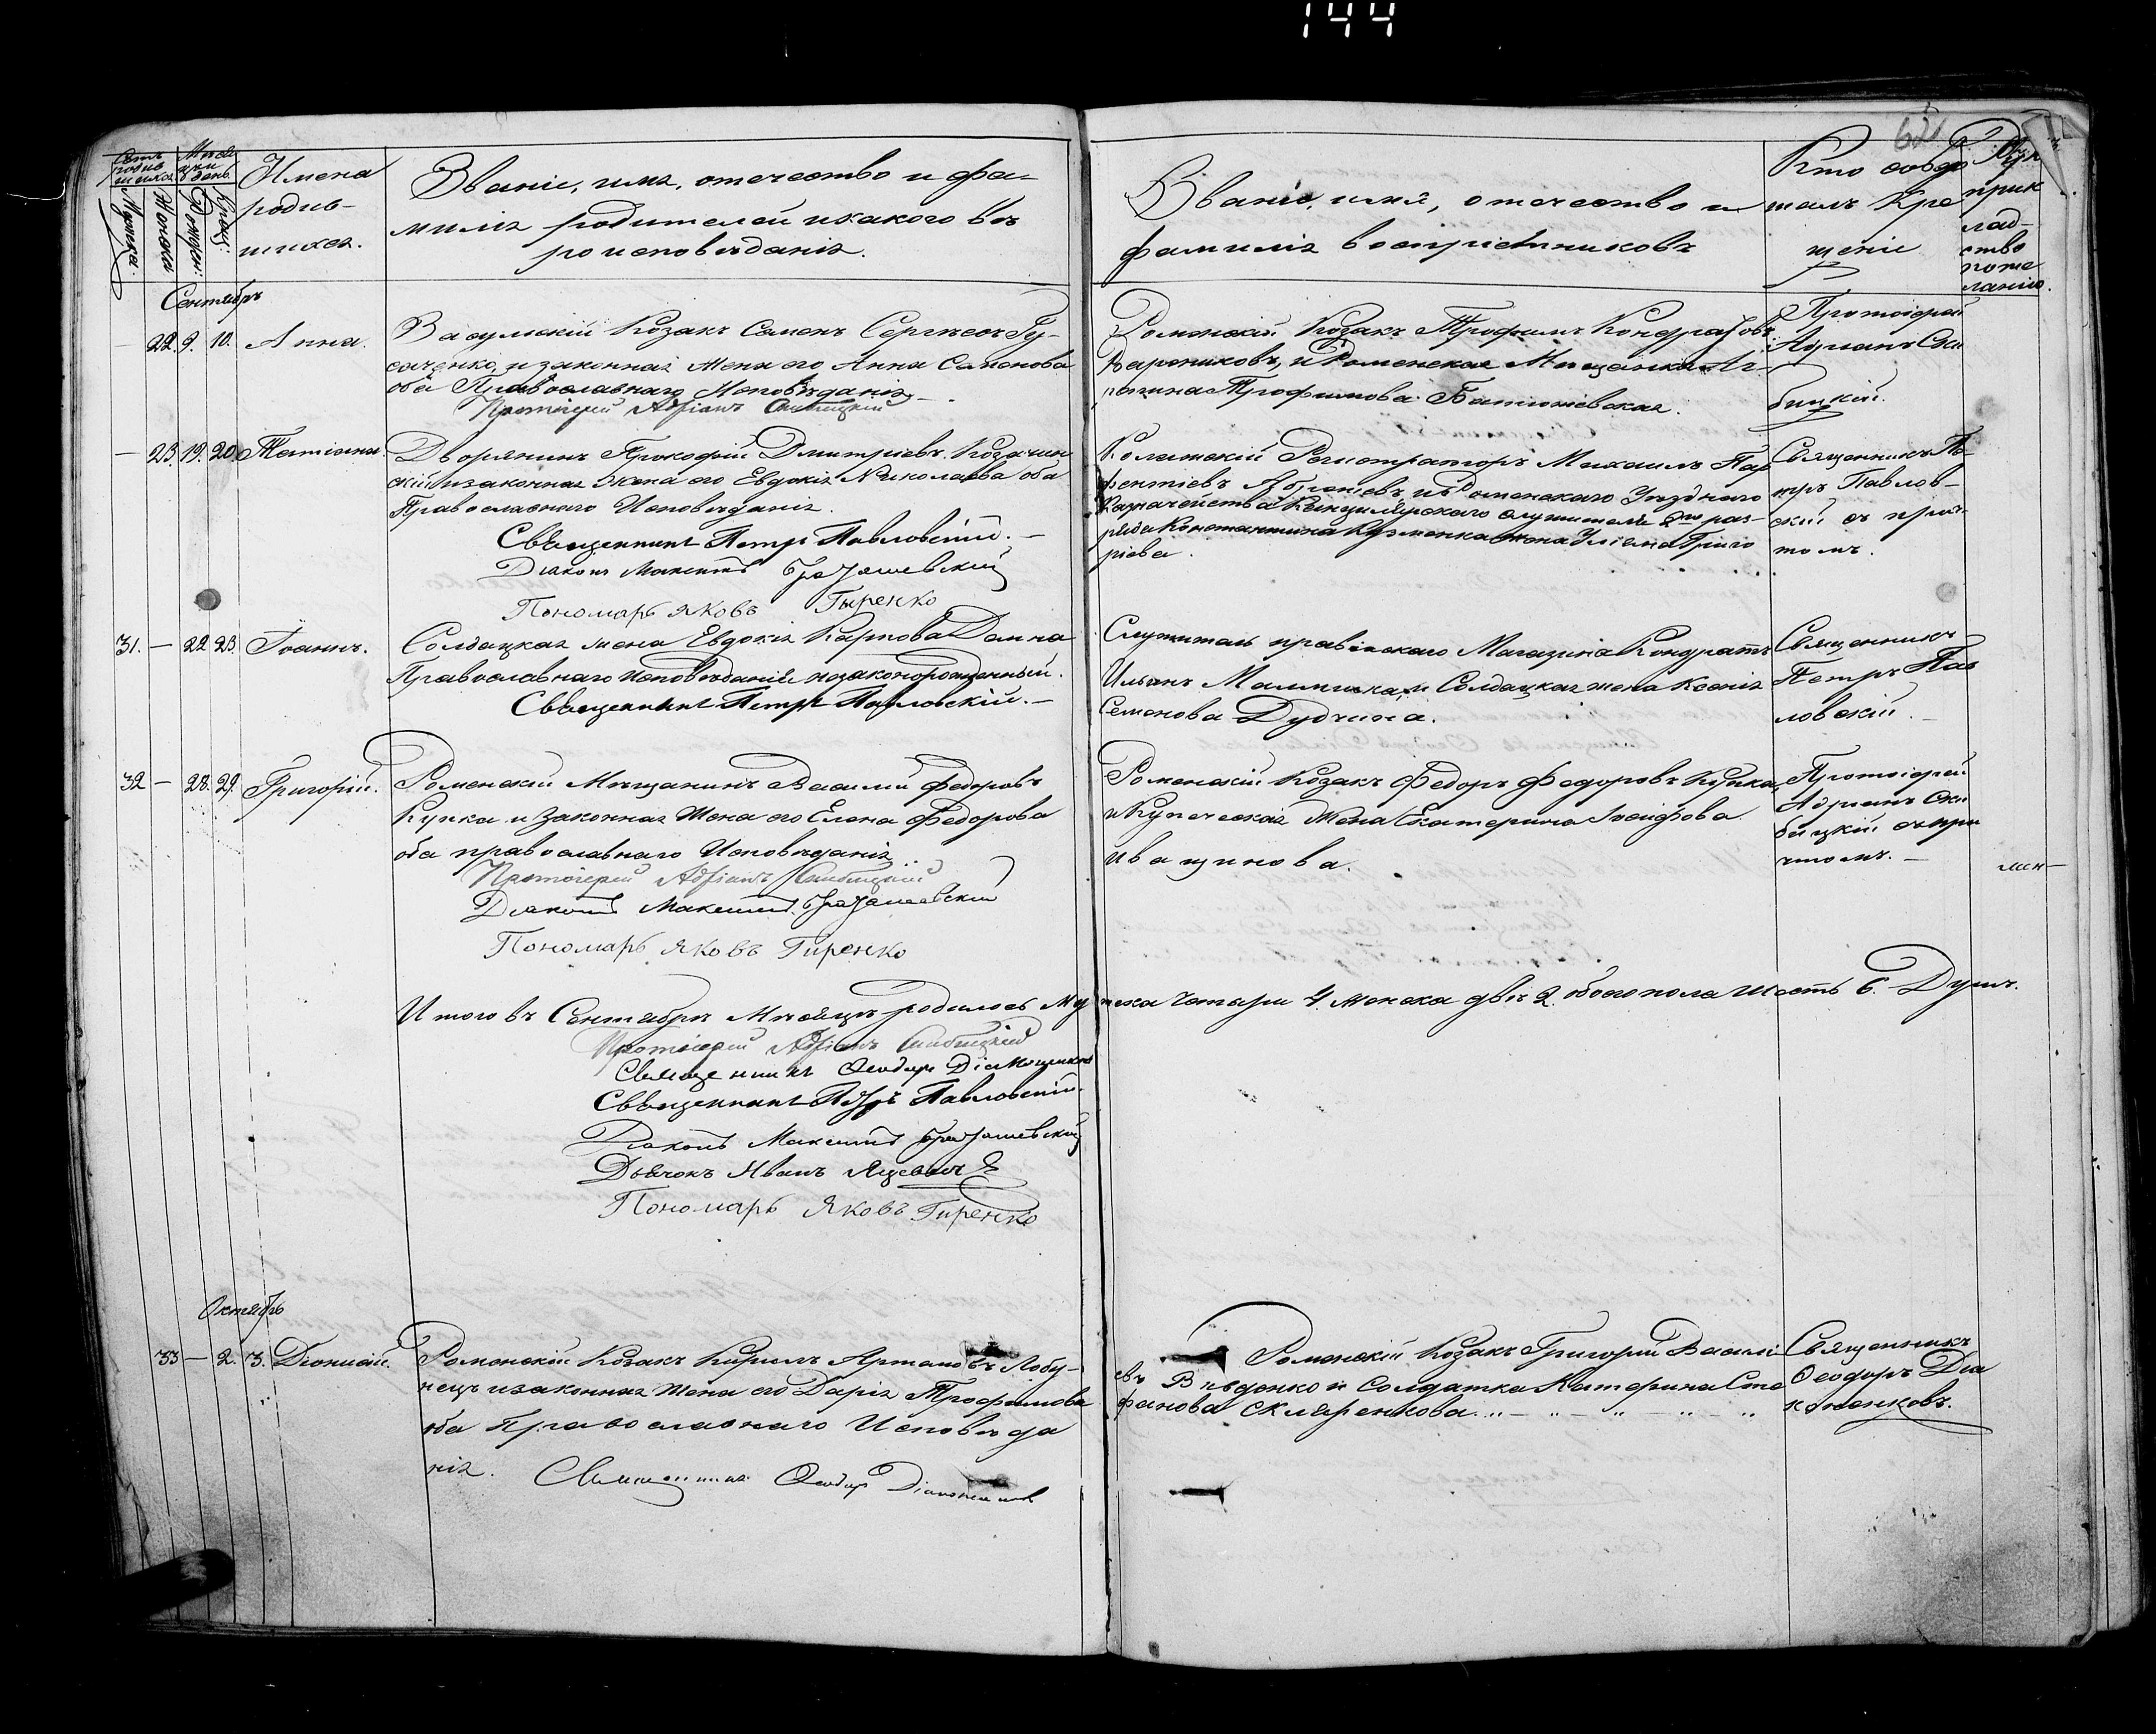 144
621
Счетъ родив шихся
Мѣся ци и день
Имена родив- шихся.
Званіе, имя, отечество и фа-
милія родителей и какого вѣ
роисповѣданія.
Званіе, имя, отечество и
фамилія воспріемниковъ
Кто совер
шалъ Кре
щеніе
Рук
прик
лад-
ство
поже
ланію.
Мужеска:
Женска
Рожден:
Крещ:
Сентябрь
— 22. 9. 10. Анна.
козакъ Семенъ Сергѣевъ Гу-
саченко, и законная жена его Анна Семенова
оба Православнаго Исповѣданія
Протоіерей Адріанъ Скибицкій
Роменскій Козакъ Трофимъ Кондратовъ
Варениковъ, и Роменская Мѣщанка
Трофимова
Протоіерей
Адріанъ Ски
бицкій.
— 23. 19. 20. Татіана.
Дворянинъ Прокофій Дмитріевъ Козачин
скій и законная жена его Евдокія Николаева оба
Православнаго Исповѣданія.
Священникъ Петръ Павловскій. —
Діаконъ Максимъ
Пономарь Яковъ Гыренко
Колежскій Регистраторъ Михаилъ Пар
фентіевъ и Роменскаго Уѣзднаго
Казначейства Канцилярскаго служителя 2го раз-
ряда Константина Кузменка жена Уліяна Григо
ріева.
Священникъ Пе-
тръ Павлов-
скій съ прич-
томъ.
31. — 22 23. Іоаннъ.
Солдацкая жена Евдокія Карпова
Православнаго Исповѣданія незаконорожденный.
Священникъ Петръ Павловскій. —
Служитель правіянскаго Магазина Кондратъ
Ильинъ и Солдацкая жена Ксенія
Семенова Дудчина.
Священникъ
Петръ Пав
ловскій.
32 — 28. 29. Григорій.
Роменскій Мѣщанинъ Василій Федоровъ
Купка и законная жена его Елена Федорова
оба православнаго Исповѣданія
Протоіерей Адріанъ Скибицкій
Діаконъ Максимъ
Пономарь Яковъ Гиренко
Роменскій Козакъ Федоръ Федоровъ Купка,
и Купеческая жена Екатерина Іосифова
Иващинова.
Протоіерей
Адріанъ Ски
бицкій съ при
чтомъ. —
Итого въ Сентябрѣ Мѣсяцѣ родилось Мужеска Четыри 4. Женска двѣ 2. обоего пола шесть 6. Душъ.
Протоіерей Адріанъ Скибицкій
Священникъ Ѳеодоръ Діаконенковъ
Священникъ Петръ Павловскій.
Діаконъ Максимъ
Дьячокъ Иванъ
Пономарь Яковъ Гиренко
Октябрь
33 — 2. 3. Діонисій.
Роменскій Козакъ Кирилъ Артамовъ Лобу-
нецъ и законная жена его Дарія Трофимова
оба Православнаго Исповѣда
нія. Священникъ Ѳеодоръ Діаконенковъ
Роменскій Козакъ Григорій Василі
евъ Вивденко и Солдатка Катерина Сте
фанова Скляренкова.
Священникъ
Ѳеодоръ Діа
коненковъ.